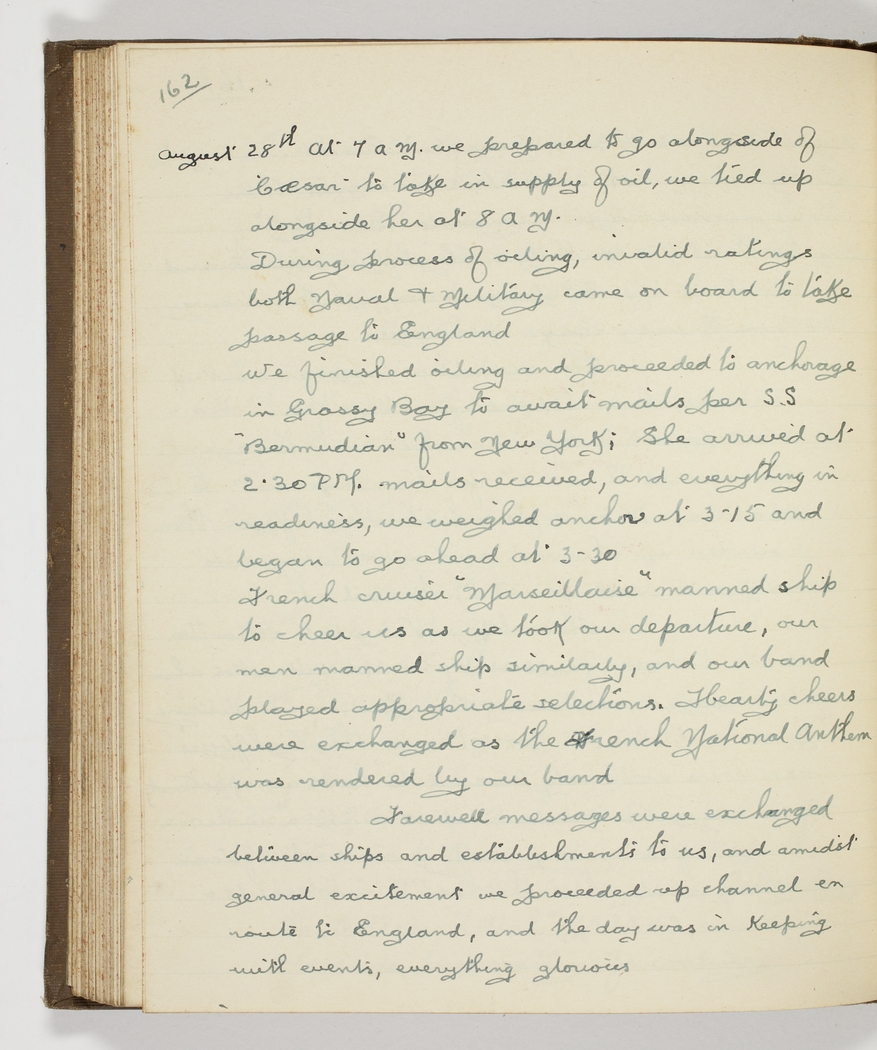 162
August 28th At 7 A M. we prepared to go alongside of
Cæsar to take in supply of oil, we tied up
alongside her at 8 A M.
During process of oiling, invalid ratings
both Naval & Military came on board to take
passage to England
We finished oiling and proceeded to anchorage
in Grassy Bay to await mails per S.S
"Bermudian" from New York; She arrived at
2.30 PM. mails received, and everything in
readiness, we weighed anchor at 3-15 and
began to go ahead at 3-30
French cruiser "Marseillaise" manned ship
to cheer us as we took our departure, our
men manned ship similarly, and our band
played appropriate selections. Hearty cheers
were exchanged as the French National Anthem
was rendered by our band
Farewell messages were exchanged
between ships and establishments to us, and amidst
general excitement we proceeded up channel en
route to England, and the day was in keeping
with events, everything glorious